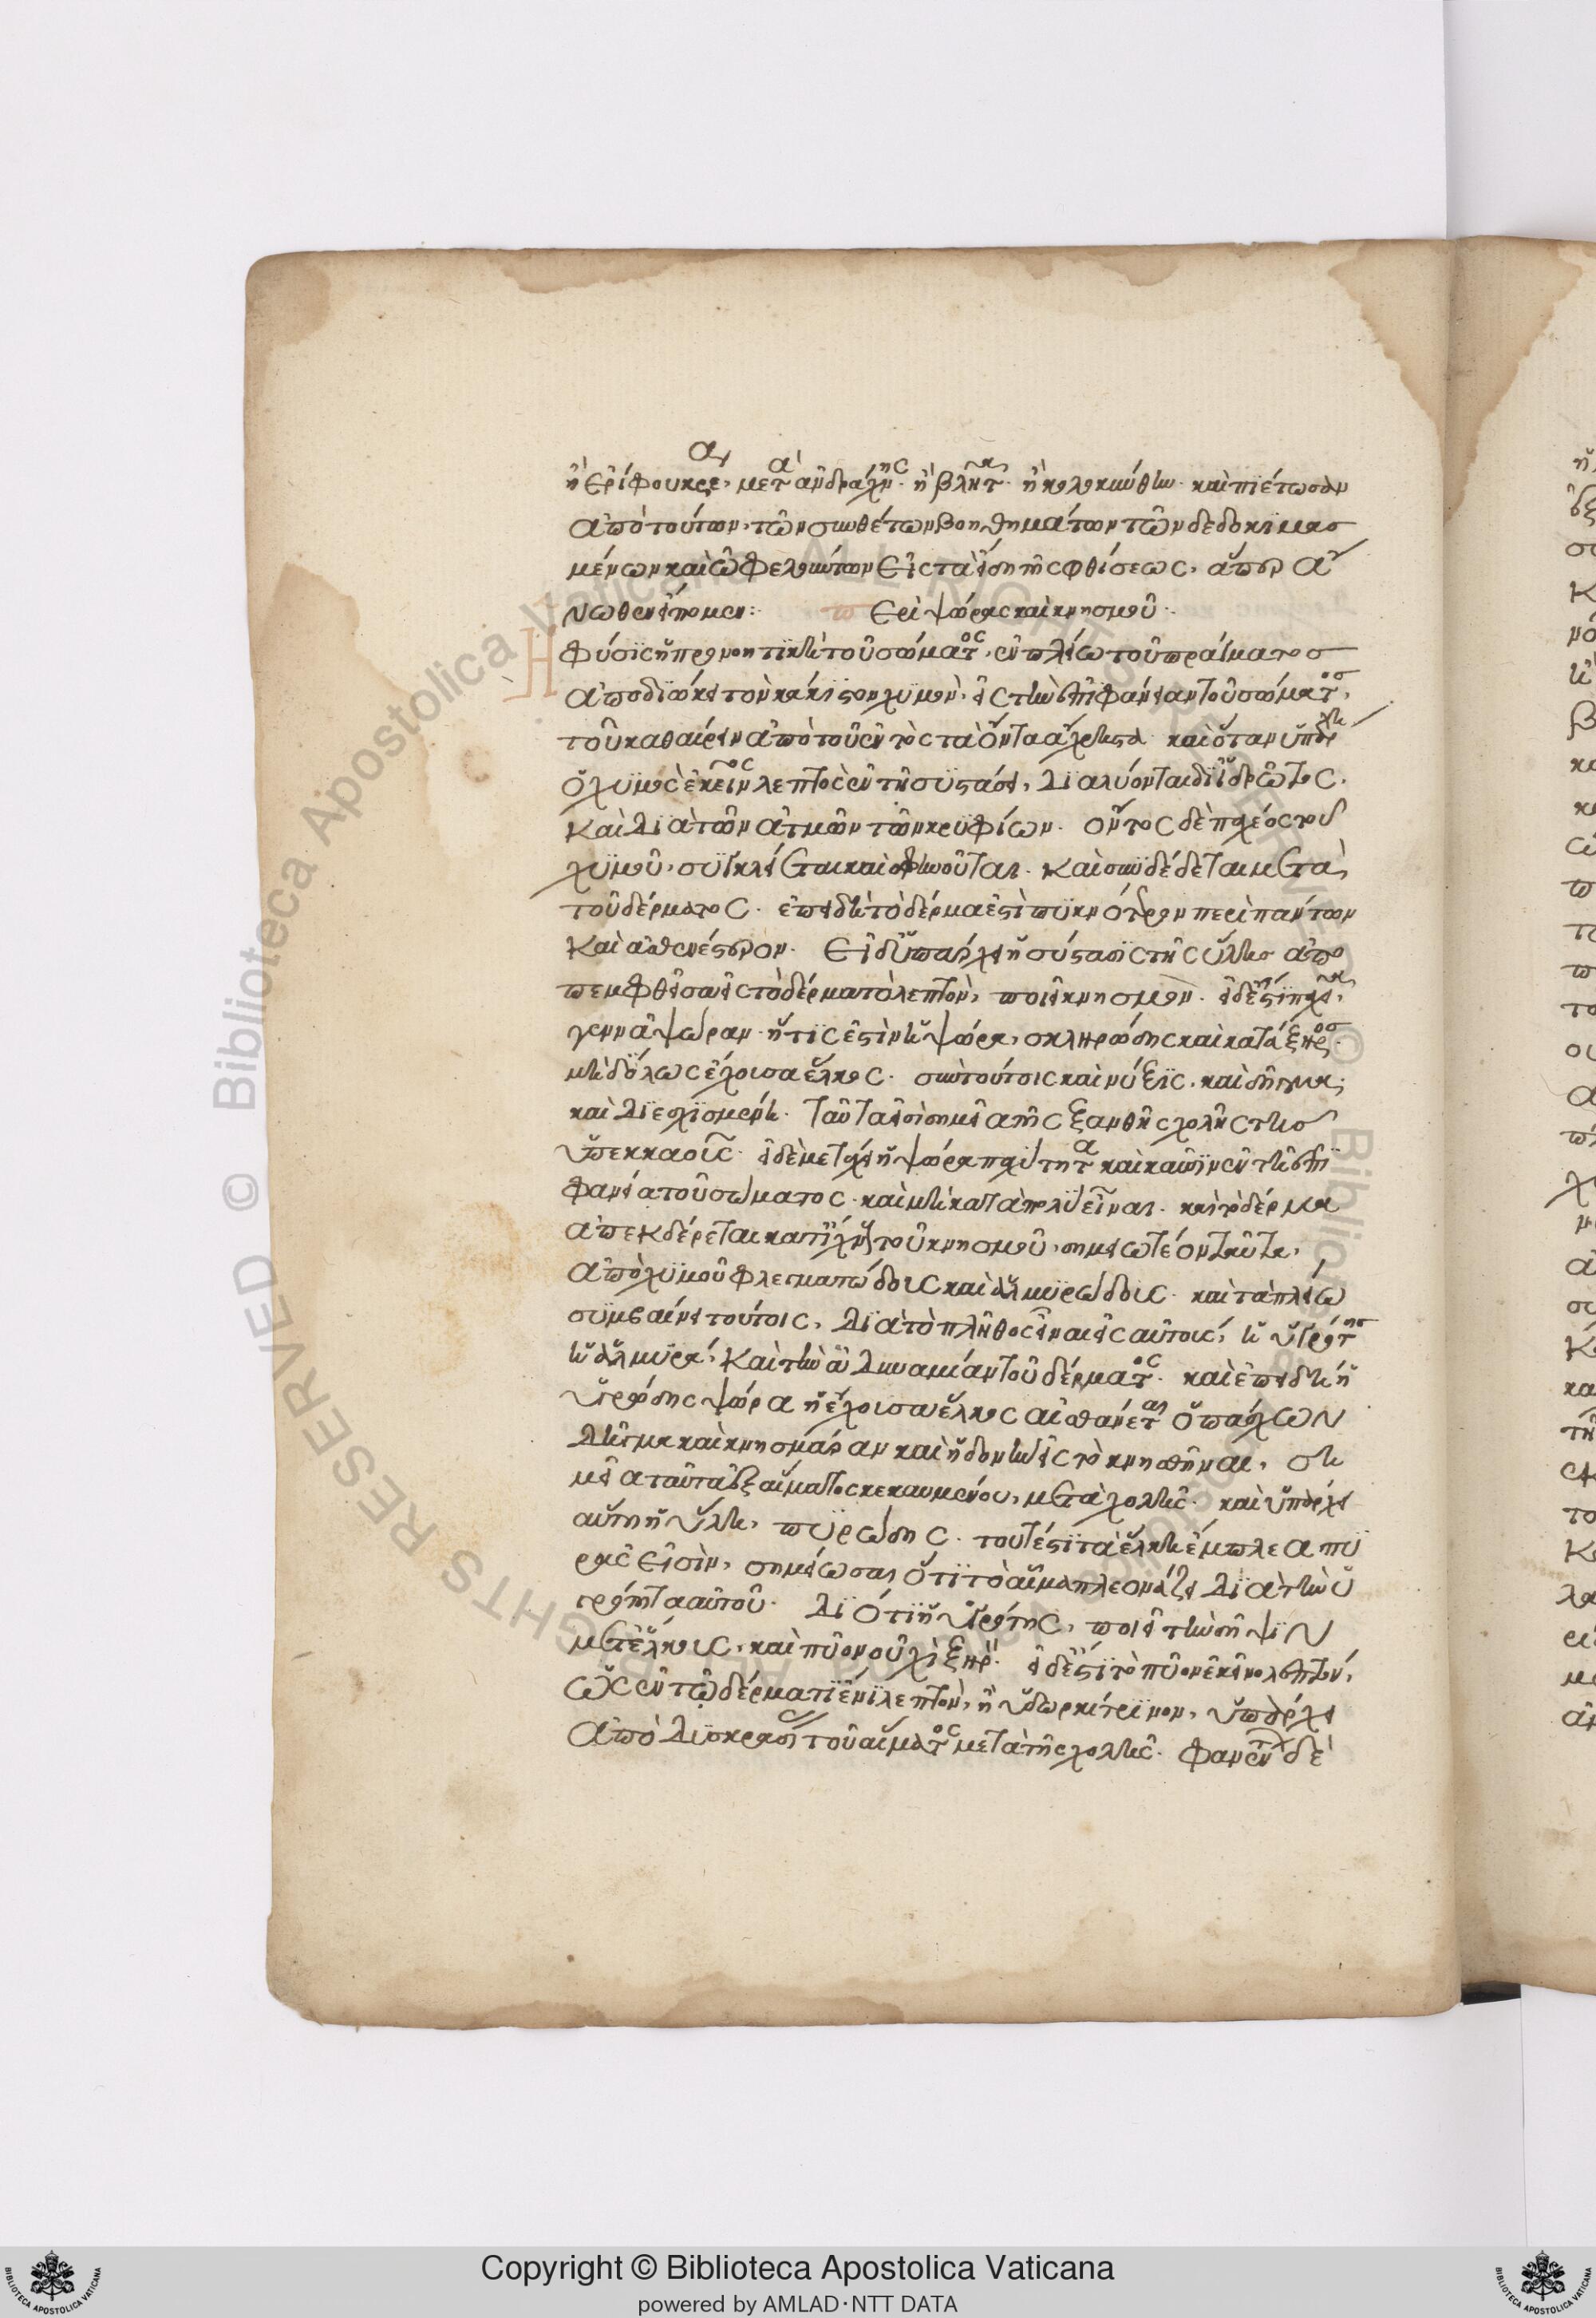 ἢ ἐρίφου κρέα, μετὰ ἀνδράχνης. ἢ βλήτα. ἢ κολοκύνθην. καὶ πιέτωσαν
ἀπὸ τούτων, τῶν συνθέτων βοηθημάτων τῶν δεδοκιμασ
μένων καὶ ὠφελούντων εἰς τὰ εἴδη τῆς φθίσεως, ἅπερ ἄ
νωθεν εἴπομεν:. Περὶ ψώρας καὶ κνησμοῦ.
Ἡ φύσις ἡ προνοητικὴ τοῦ σώματος, ἐν πλείω τοῦ πράγματοσ
ἀποδιώκει τὸν κάκιστον χυμὸν, εἰς τὴν ἐπιφάνειαν τοῦ σώματοσ,
τοῦ καθαίρειν ἀπὸ τοῦ ἐντὸς τὰ ὄντα ἄχρηστα. καὶ ὅταν ὑπάρχη
ὁ χυμὸς ἐκεῖνος λεπτὸς ἐν τῇ συστάσει, διαλύονται δι ἱδρῶτος.
καὶ διὰ τῶν ἀτμῶν τῶν κρυφίων. οὗτος δὲ παχέος τοῦ
χυμοῦ, συγκλείεται καὶ σφηνοῦται. καὶ συνδέδεται μετὰ
τοῦ δέρματος. ἐπειδὴ τὸ δέρμα ἐστὶ πυκνότερον περὶ πάντων
καὶ ἀσθενέστερον. Εἰ δ ὑπάρχει ἡ σύστασις τῆς ὕλησ ἀπο
πεμφθεῖσα εἰς τὸ δέρμα τὸ λεπτὸν, ποιεῖ κνησμον. εἰ δέ ἐστι παχεῖα,
γεννᾷ ψώραν. ἥτις ἐστὶν ἡ ψώρα, σκληρώδης καὶ κατάξηροσ.
μὴ δόλως ἔχουσα ἕλκος. σὺν τούτοις καὶ νύξις. καὶ δῆγμα;
καὶ διεσχισμένη. ταῦτα εἰσὶ σημεῖα τῆς ξανθῆς χολῆς τῆσ
ὑπεκκαοῦς. εἰ δὲ μετέχει ἡ ψώρα παχύτητα καὶ καῦσιν ἐν τῇ ἐπι
φανεία τοῦ σώματος. καὶ μὴ κατὰ πολὺ εἶναι. καὶ τὸ δέρμα
ἀπεκδέρεται κατ ἴχνη τοῦ κνησμοῦ, σημειωτέον ταῦτα,
ἀπὸ χυμοῦ φλεγματώδους καὶ ἁλμυρώδους. καὶ τὰ πλείω
συμβαίνει τούτοις, διὰ τὸ πλῆθος εἶναι εἰς αὐτοὺς, ἡ ὑγρότησ
ἡ ἁλμυρά, καὶ τὴν ἀδυναμίαν τοῦ δέρματος. καὶ ἐπειδὴ ἡ
ὑγρώδης ψώρα ἡ ἔχουσα ἕλκος αἰσθάνεται ὁ πάσχων
δῆγμα καὶ κνησμάραν καὶ ἡδονὴν εἰς τὸ κνησθῆναι, ση
μεῖα ταῦτα ἐξ αἵματος κεκαυμένου, μετὰ χολῆς. καὶ ὑπάρχει
αὕτη ἡ ὕλη, πυρώδης. τουτέστι τὰ ἕλκη ἔμπλεα πύ
ρας εἰσὶν, σημείωσαι ὅτι τὸ αἷμα πλεονάζει διὰ τὴν ὑ
γρότητα αὐτοῦ. διότι ἡ ὑγρότης, ποιεῖ τὴν σῆψιν
μετ ἕλκους, καὶ πῦον οὐχὶ ξηρ. εἰ δέ ἐστι τὸ πῦον ἐκεῖνο λεπτὸν,
ὡς ἐν τῷ δέρματι ἔνι λεπτὸν, ἢ ὕδωρ κίτρινον, ὑπάρχει
ἀπὸ δισκρασίας τοῦ αἵματος μετὰ τῆς χολῆς. φανέντων δὲ
Copyright © Biblioteca Apostolica Vaticana
powered by AMLAD·NTT DATA